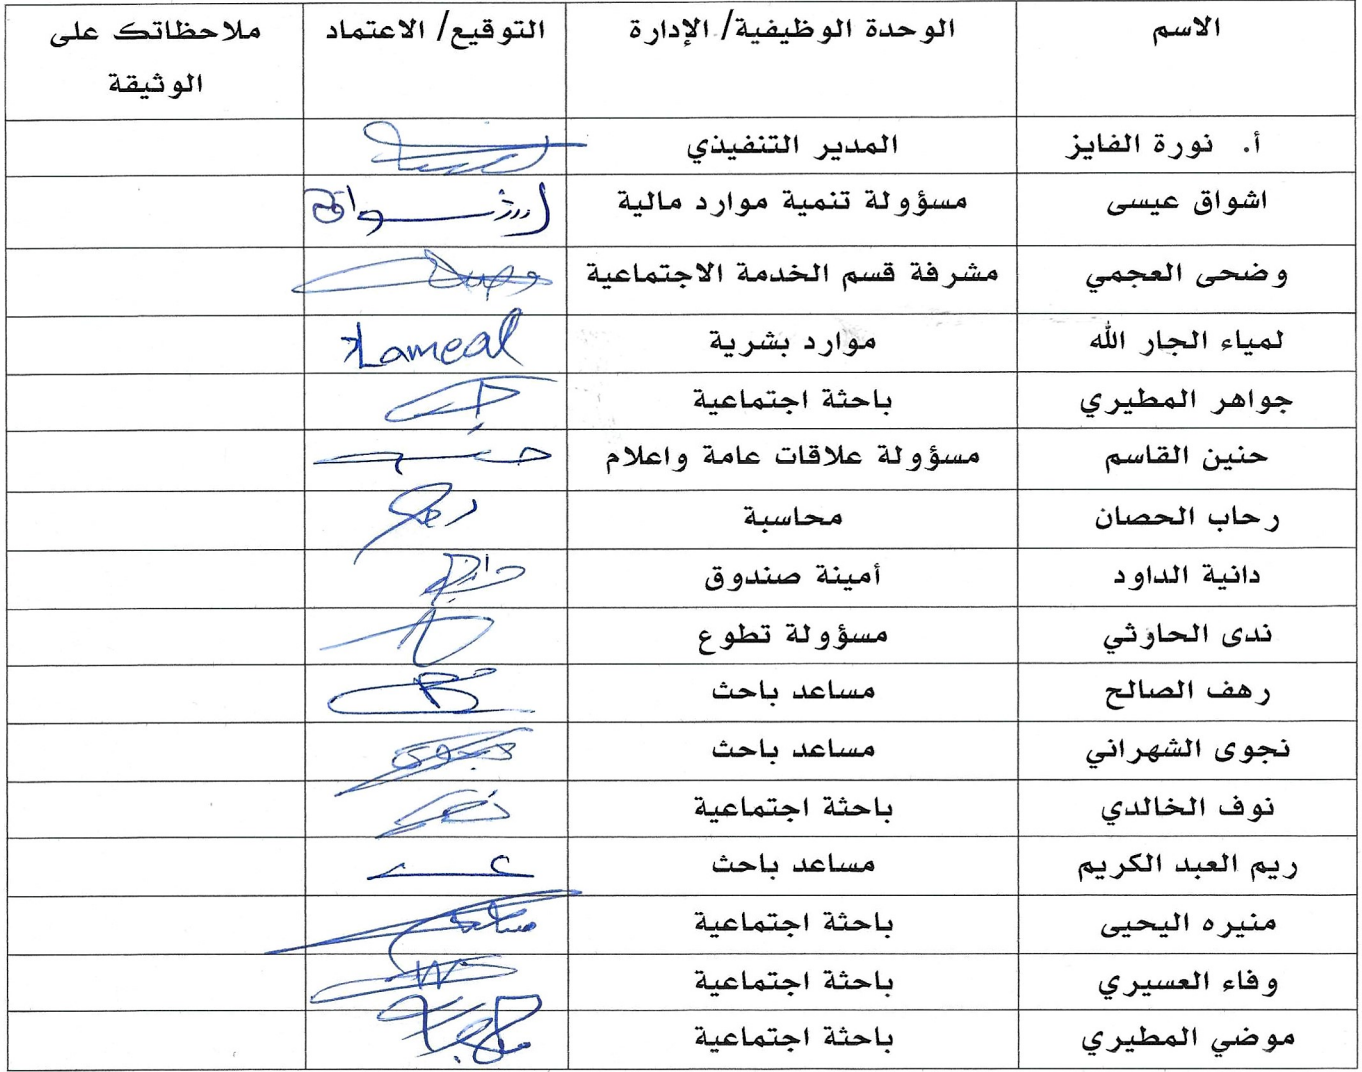 الاسم الوحدة الوظيفية/ الإدارة التوقيع/ الاعتماد ملاحظاتك على
الوثيقة
أ. نورة الفايز المدير التنفيذي
اشواق عيسى مسؤولة تنمية موارد مالية اشواق
وضحى العجمي مشرفة قسم الخدمة الاجتماعية
لمياء الجار الله موارد بشرية Lameal
جواهر المطيري باحثة اجتماعية
حنين القاسم مسؤولة علاقات عامة واعلام
رحاب الحصان محاسبة
دانية الداود أمينة صندوق
ندى الحاوثي مسؤولة تطوع
رهف الصالح مساعد باحث
نجوى الشهراني مساعد باحث نجوى
نوف الخالدي باحثة اجتماعية
ريم العبد الكريم مساعد باحث
منيره اليحيى باحثة اجتماعية
وفاء العسيري باحثة اجتماعية
موضي المطيري باحثة اجتماعية